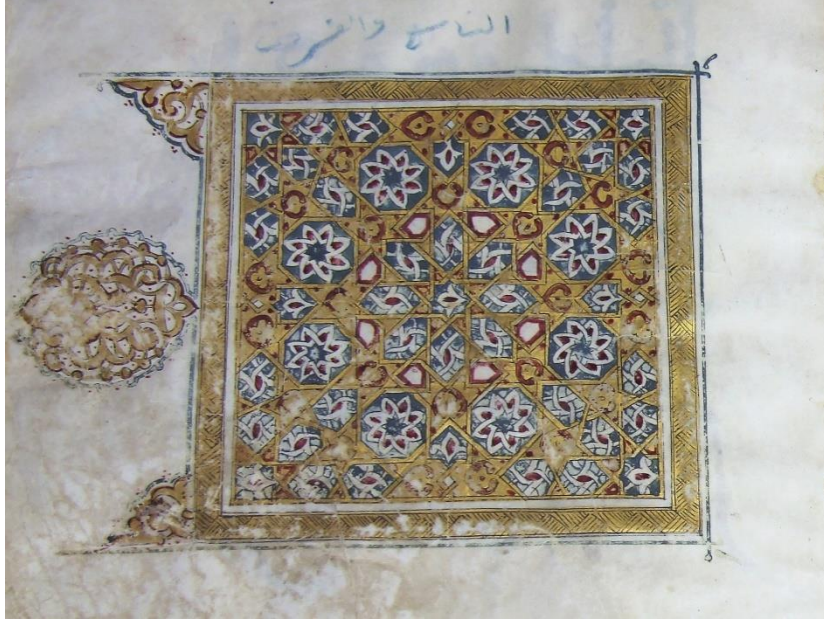 التاسع والعشرون